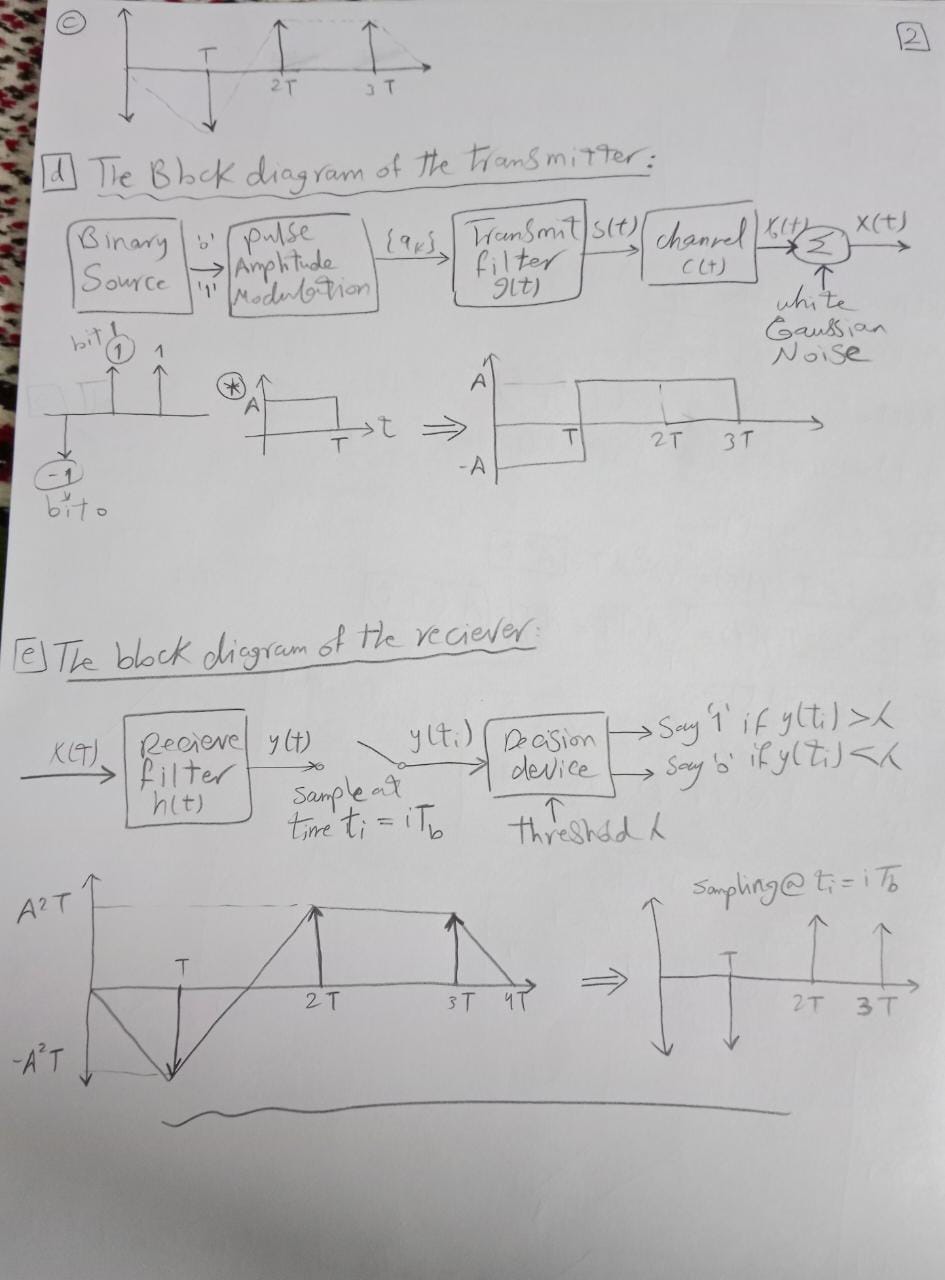 c
2
T
2T
3T
d The Block diagram of the transmitter:
Binary Source
'0'
'1'
Pulse Amplitude Modulation
{ak}
Transmit filter g(t)
S(t)
channel c(t)
X0(t)
Σ
X(t)
white Gaussian Noise
bit 1
1
1
-1
bit 0
*
A
T
t
⇒
A
-A
T
2T
3T
e The block diagram of the reciever:
X(t)
Recieve filter h(t)
y(t)
sample at time ti = iTb
y(ti)
Decision device
Say '1' if y(ti) > λ
Say '0' if y(ti) < λ
threshold λ
A²T
-A²T
T
2T
3T
4T
⇒
Sampling @ ti = iTb
T
2T
3T